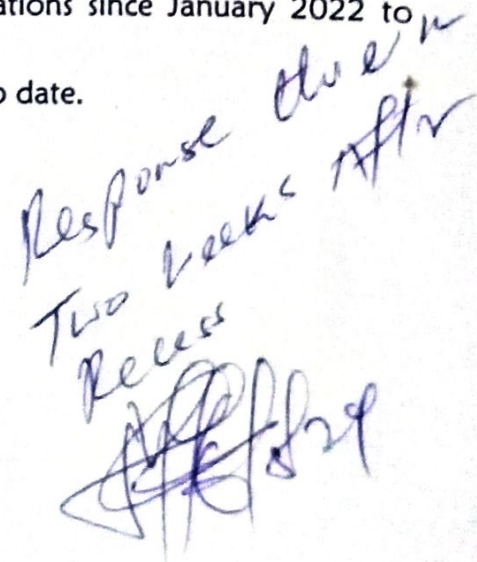 ations since January 2022 to
o date.
Response due in
Two weeks After
Recess